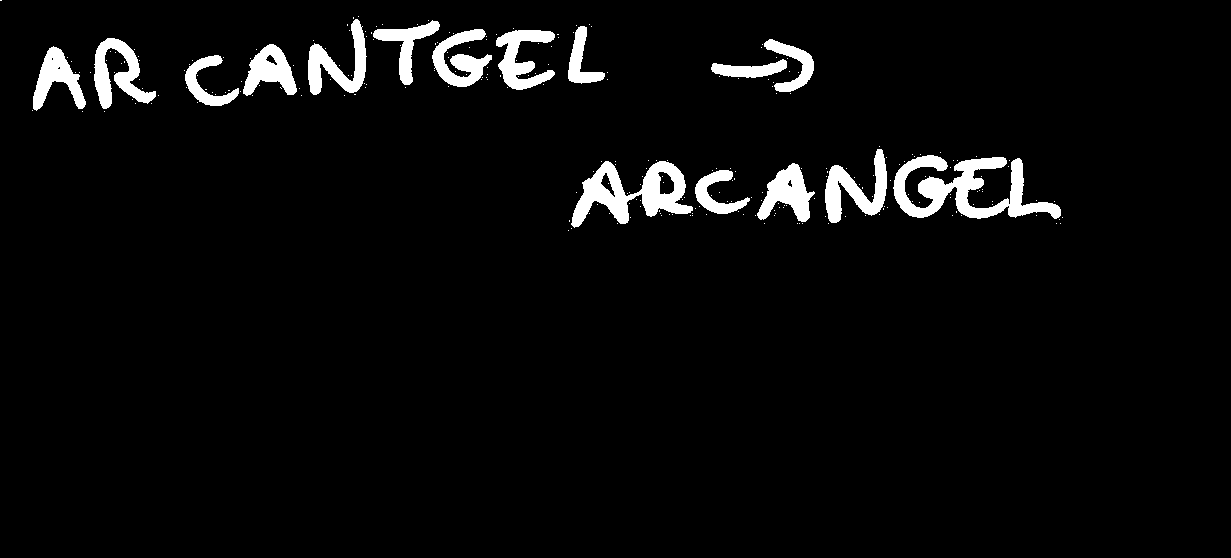 ARCANTGEL →
ARCANGEL